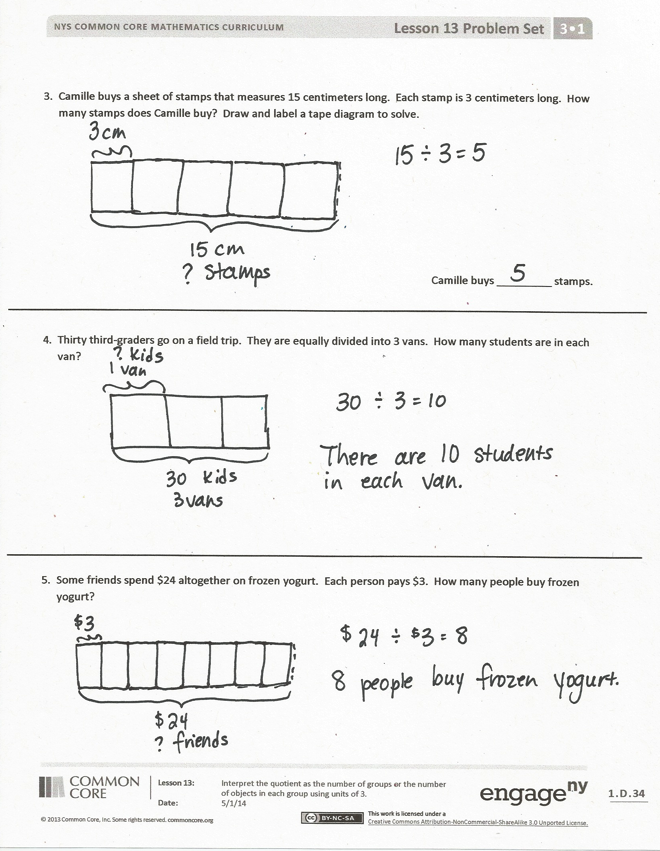 NYS COMMON CORE MATHEMATICS CURRICULUM
Lesson 13 Problem Set 3•1
3. Camille buys a sheet of stamps that measures 15 centimeters long. Each stamp is 3 centimeters long. How
many stamps does Camille buy? Draw and label a tape diagram to solve.
3 cm
15 ÷ 3 = 5
15 cm
? stamps
Camille buys 5 stamps.
4. Thirty third-graders go on a field trip. They are equally divided into 3 vans. How many students are in each
van?
? kids
1 van
30 ÷ 3 = 10
There are 10 students
in each van.
30 kids
3 vans
5. Some friends spend $24 altogether on frozen yogurt. Each person pays $3. How many people buy frozen
yogurt?
$3
$24 ÷ $3 = 8
8 people buy frozen yogurt.
$24
? friends
COMMON
CORE
Lesson 13:
Interpret the quotient as the number of groups or the number
of objects in each group using units of 3.
Date:
5/1/14
engage ny
1.D.34
© 2013 Common Core, Inc. Some rights reserved. commoncore.org
cc BY-NC-SA
This work is licensed under a
Creative Commons Attribution-NonCommercial-ShareAlike 3.0 Unported License.